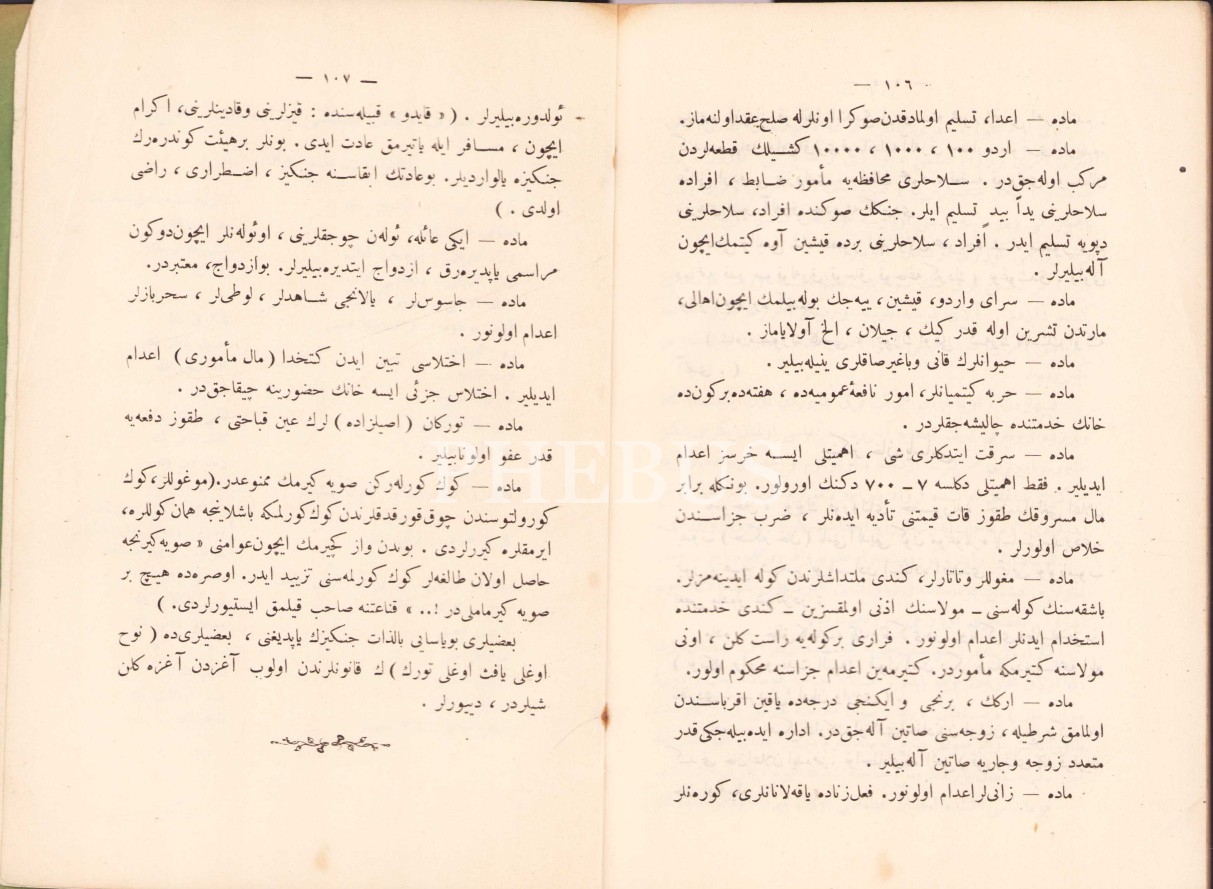 — ١٠٦ —
ماده — اعدا، تسليم اولمادقدن صوكرا اونلرله صلح عقد اولنه‌ماز.
ماده — اردو ١٠٠ ، ١٠٠٠ ، ١٠٠٠٠ كشيلك قطعه‌لردن
مركب اوله‌جق‌در . سلاحلری محافظه‌يه مأمور ضابط ، افراده
سلاحلرينی يداً بيد تسليم ايلر. جنكك صوكنده افراد، سلاحلرينی
دپويه تسليم ايدر . افراد ، سلاحلرينی برده قيشين آوه كيتمك‌ايچون
آله‌بيليرلر .
ماده — سرای واردو، قيشين ، ييه‌جك بوله‌بيلمك ايچون‌اهالی،
مارتدن تشرين اوله قدر كيك ، جيلان ، الخ آولاياماز .
ماده — حيوانلرك قانی وباغيرصاقلری ينيله‌بيلير .
ماده — حربه كيتميانلر، امور نافعهٔ عموميه‌ده ، هفته‌ده بركون‌ده
خانك خدمتنده چاليشه‌جقلردر .
ماده — سرقت ايتدكلری شی ، اهميتلی ايسه خرسز اعدام
ايديلير . فقط اهميتلی دكلسه ٧ – ٧٠٠ دكنك اورولور. بونكله برابر
مال مسروقك طقوز قات قيمتنی تأديه ايده‌نلر ، ضرب جزاسندن
خلاص اولورلر .
ماده — مغوللر وتاتارلر، كندی ملتداشلرندن كوله ايدينه‌مزلر.
باشقه‌سنك كوله‌سنی – مولاسنك اذنی اولمقسزين – كندی خدمتنده
استخدام ايدنلر اعدام اولونور . فراری بركوله‌يه راست كلن ، اونی
مولاسنه كتيرمكه مأموردر. كتيرمه‌ين اعدام جزاسنه محكوم اولور.
ماده — اركك ، برنجی و ايكنجی درجه‌ده ياقين اقرباسندن
اولمامق شرطيله ، زوجه‌سنی صاتين آله‌جق‌در. اداره ايده‌بيله‌جكی قدر
متعدد زوجه وجاريه صاتين آله‌بيلير .
ماده — زانی‌لر اعدام اولونور. فعل زناده ياقه‌لانانلری، كوره‌نلر
— ١٠٧ —
ئولدوره‌بيليرلر . ( « قايدو » قبيله‌سنده : قيزلرينی وقادينلرينی، اكرام
ايچون ، مسافر ايله ياتيرمق عادت ايدی . بونلر برهيئت كوندره‌رك
جنكيزه يالوارديلر. بوعادتك ابقاسنه جنكيز ، اضطراری ، راضی
اولدی . )
ماده — ايكی عائله، ئوله‌ن چوجقلرينی ، اوئوله‌نلر ايچون‌دوكون
مراسمی ياپديره‌رق ، ازدواج ايتديره‌بيليرلر. بوازدواج، معتبردر.
ماده — جاسوس‌لر ، يالانجی شاهدلر ، لوطی‌لر ، سحربازلر
اعدام اولونور .
ماده — اختلاسی تبين ايدن كتخدا ( مال مأموری ) اعدام
ايديلير . اختلاس جزئی ايسه خانك حضورينه چيقاجق‌در .
ماده — توركان ( اصيلزاده ) لرك عين قباحتی ، طقوز دفعه‌يه
قدر عفو اولونابيلير .
ماده — كوك كورله‌ركن صويه كيرمك ممنوعدر.(موغوللر،كوك
كورولتوسندن چوق‌قورقدقلرندن كوك‌كورلمكه باشلاينجه همان كوللره،
ايرمقلره كيررلردی . بوندن واز كچيرمك ايچون‌عوامنی « صويه كيرنجه
حاصل اولان طالغه‌لر كوك كورلمه‌سنی تزييد ايدر. اوصره‌ده هيچ بر
صويه كيرماملی‌در !.. » قناعتنه صاحب قيلمق ايستيورلردی. )
بعضيلری بوياسايی بالذات جنكيزك ياپديغنی ، بعضيلری‌ده ( نوح
اوغلی يافث اوغلی تورك ) ك قانونلرندن اولوب آغزدن آغزه كلن
شيلردر ، دييورلر .
PHEBUS